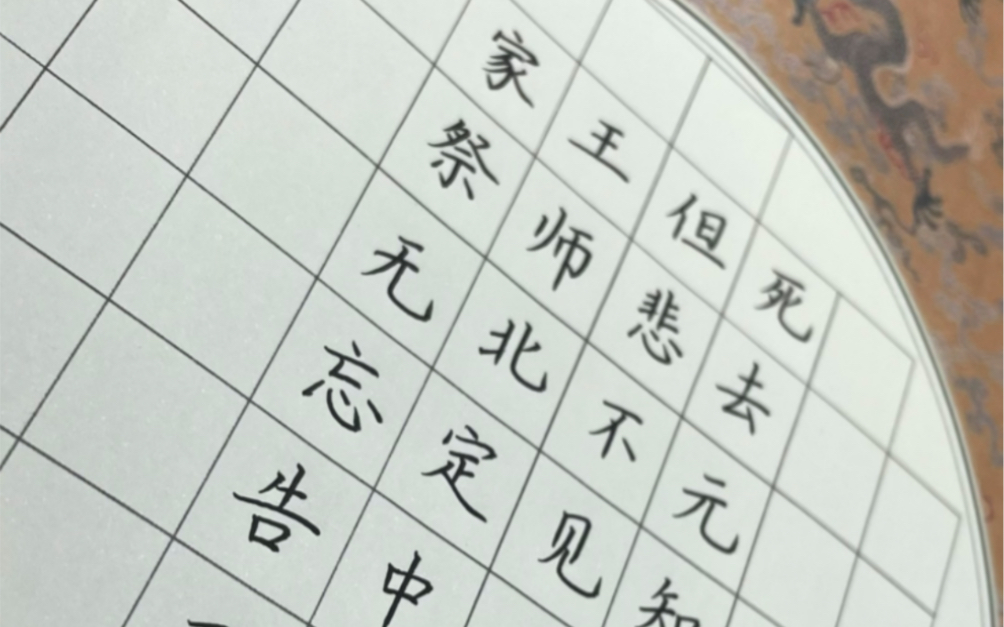 死去元知
但悲不见
王师北定中
家祭无忘告